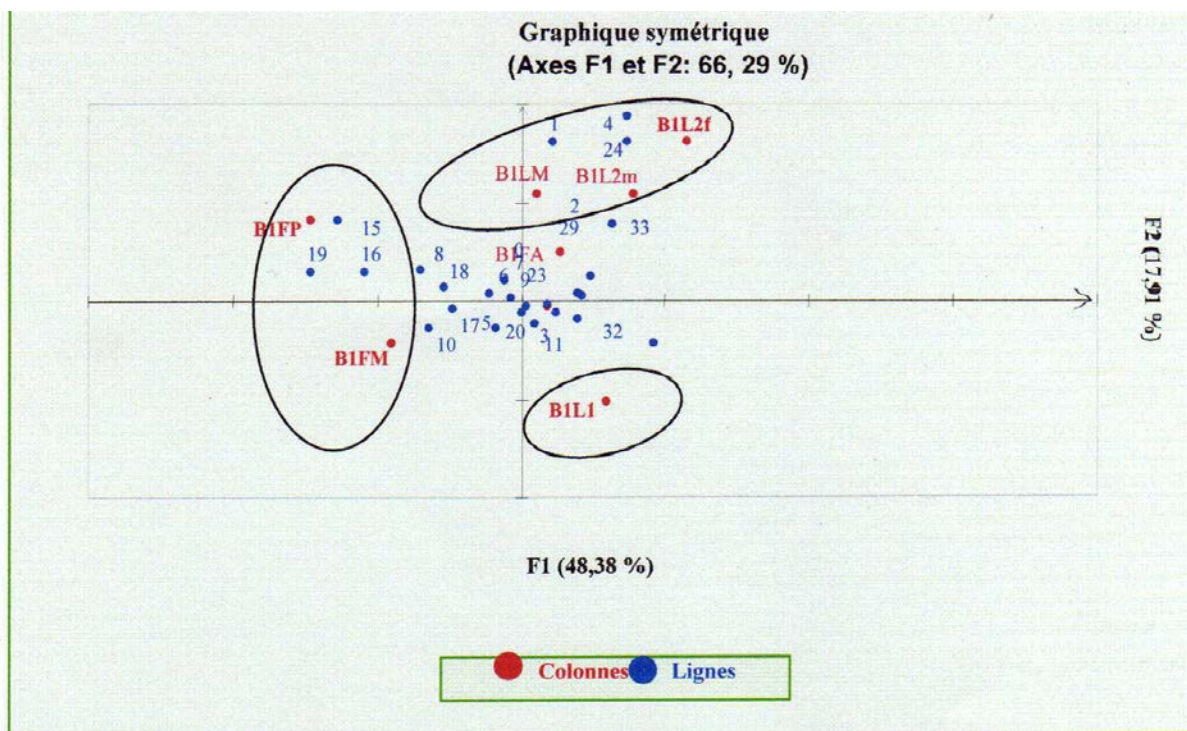 Graphique symétrique
(Axes F1 et F2: 66, 29 %)
1 4 B1L2f
24
B1LM B1L2m
2
B1FP 15 29 33
19 16 8 B1FA
18 6 23
9
175 20 3 32
10 11
B1FM
B1L1
F2 (17,91 %)
F1 (48,38 %)
Colonnes Lignes